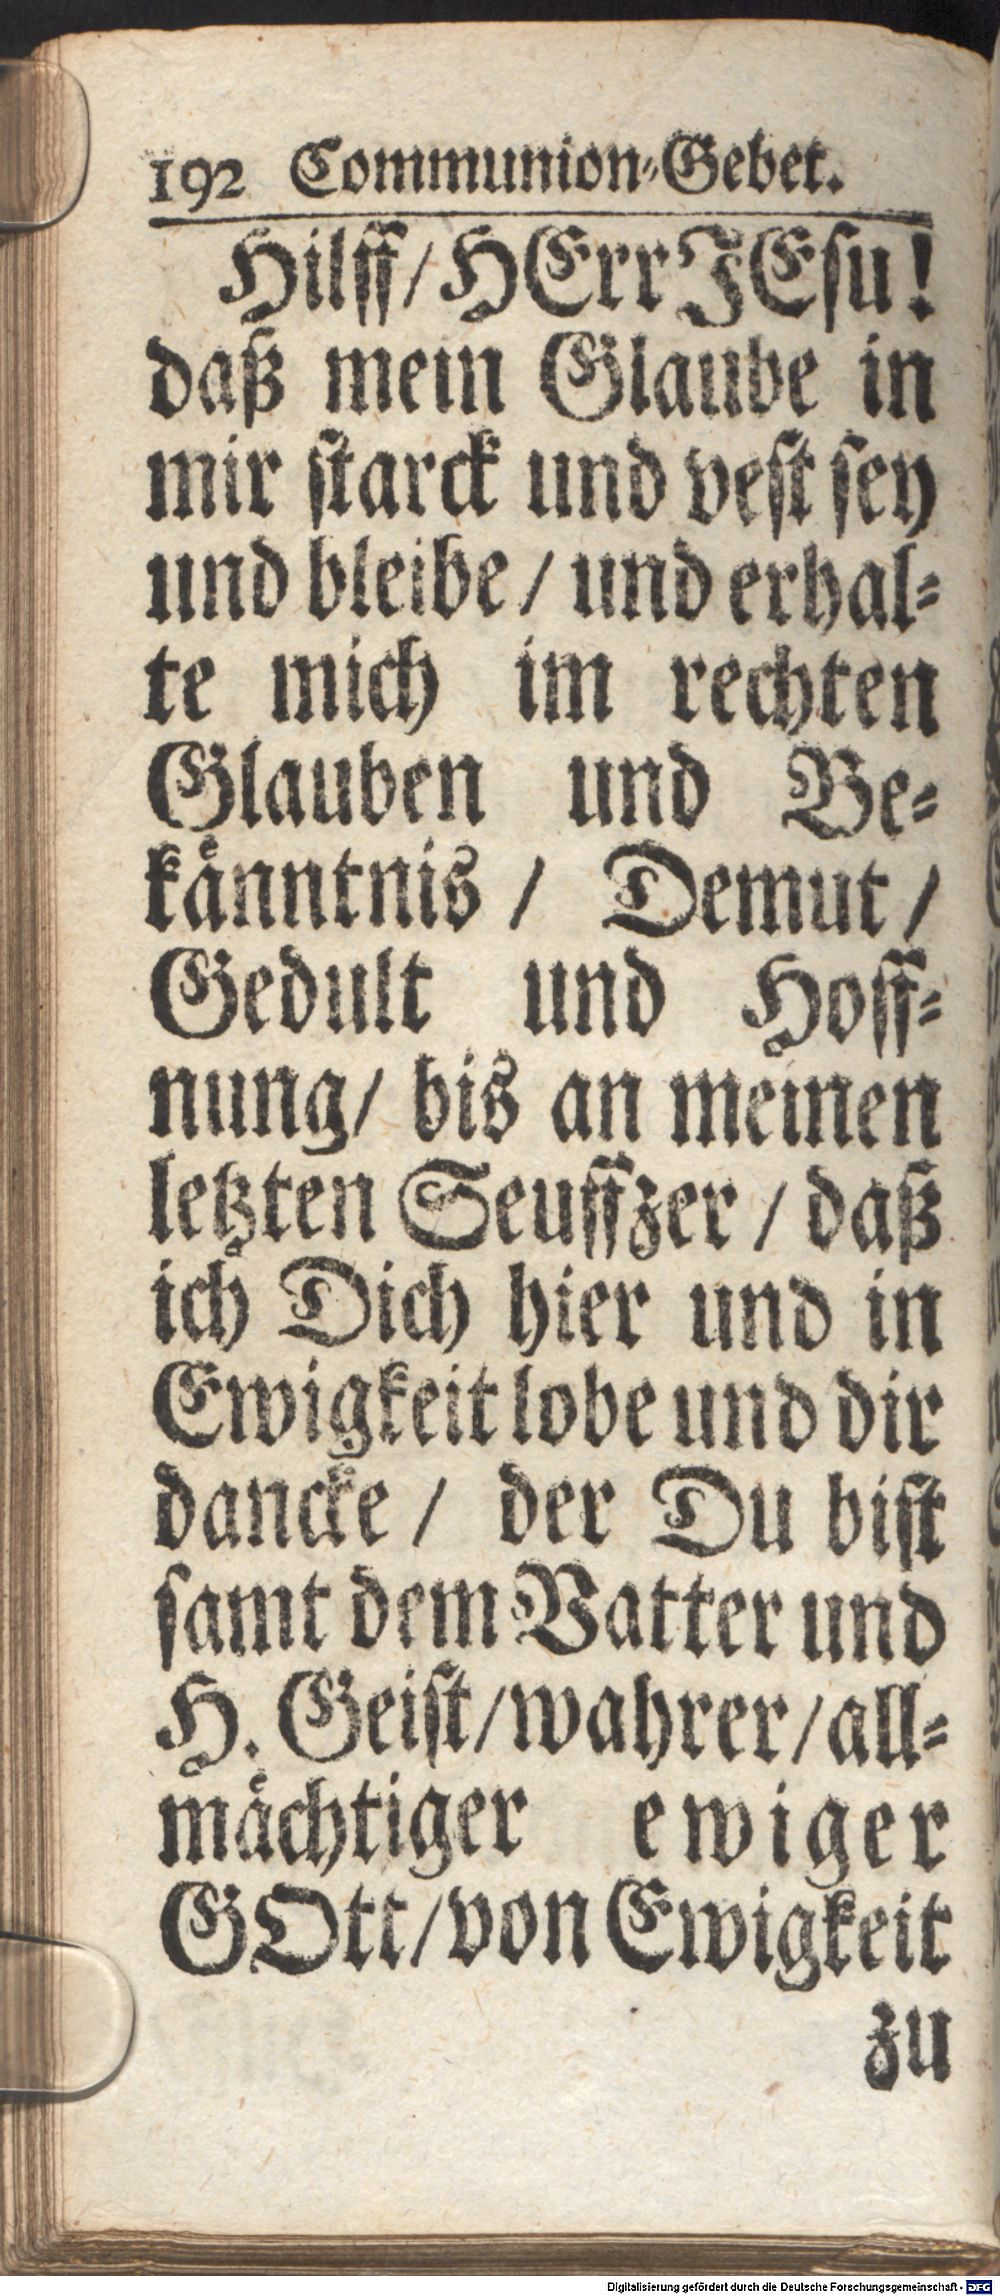 192 Communion-Gebet.
Hilff / HErr JEsu!
daß mein Glaube in
mir starck und vest sey
und bleibe / und erhal-
te mich im rechten
Glauben und Be-
känntnis / Demut /
Gedult und Hoff-
nung / bis an meinen
letzten Seuffzer / daß
ich Dich hier und in
Ewigkeit lobe und dir
dancke / der Du bist
samt dem Vatter und
H. Geist / wahrer / all-
mächtiger ewiger
GOtt / von Ewigkeit
zu
Digitalisierung gefördert durch die Deutsche Forschungsgemeinschaft - DFG